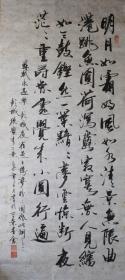 明月如霜好風如水清景無限曲
港跳魚圓荷瀉露寂寞無人見紞
如三鼓鏗然一葉黯黯夢雲驚斷夜
茫茫重尋無處覺來小園行遍
蘇軾永遇樂彭城夜宿燕子樓夢盼盼因作此詞